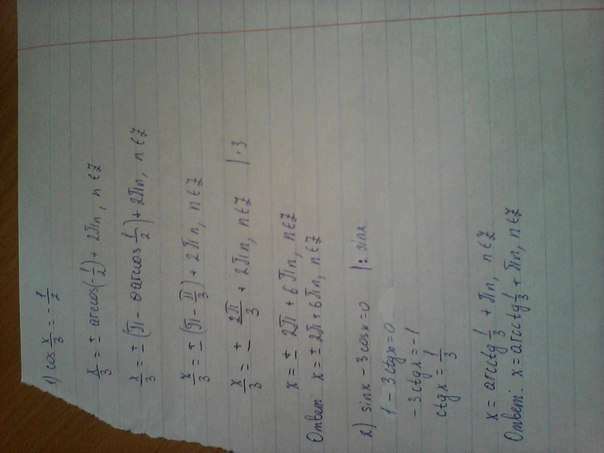 1) cos x/3 = -1/2
x/3 = ± arccos(-1/2) + 2πn, n∈Z
x/3 = ± (π - arccos 1/2) + 2πn, n∈Z
x/3 = ± (π - π/3) + 2πn, n∈Z
x/3 = ± 2π/3 + 2πn, n∈Z |·3
x = ± 2π + 6πn, n∈Z
Ответ: x = ± 2π + 6πn, n∈Z
2) sinx - 3cosx = 0 |: sinx
1 - 3ctgx = 0
-3ctgx = -1
ctgx = 1/3
x = arcctg 1/3 + πn, n∈Z
Ответ: x = arcctg 1/3 + πn, n∈Z